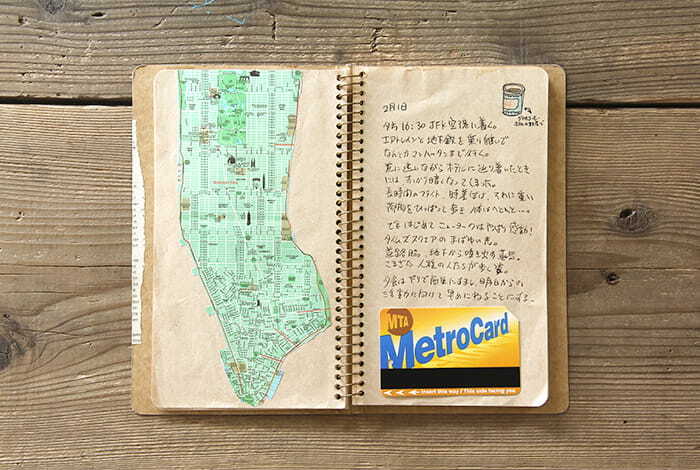 2月1日
夕方16:30 JFK空港に着く。
エアトレインと地下鉄を乗り継いで
なんとかマンハッタンまでたどりつく。
荒に迷いながらホテルに辿り着いたとき
にはすっかり暗くなってしまった。
長時間のフライト、時差ぼけ、それに重い
荷物をひっぱって歩き、体はへとへと…。
でもはじめてニューヨークはやっぱり感動!
タイムズスクエアのまばゆい光。
道路脇、地下から噴き出す蒸気。
さまざまな人種の人たちが歩く姿。
夕食はデリで簡単にすまし、明日からの
ために早めにねることにする。
MTA
MetroCard
Insert this way / This side facing you